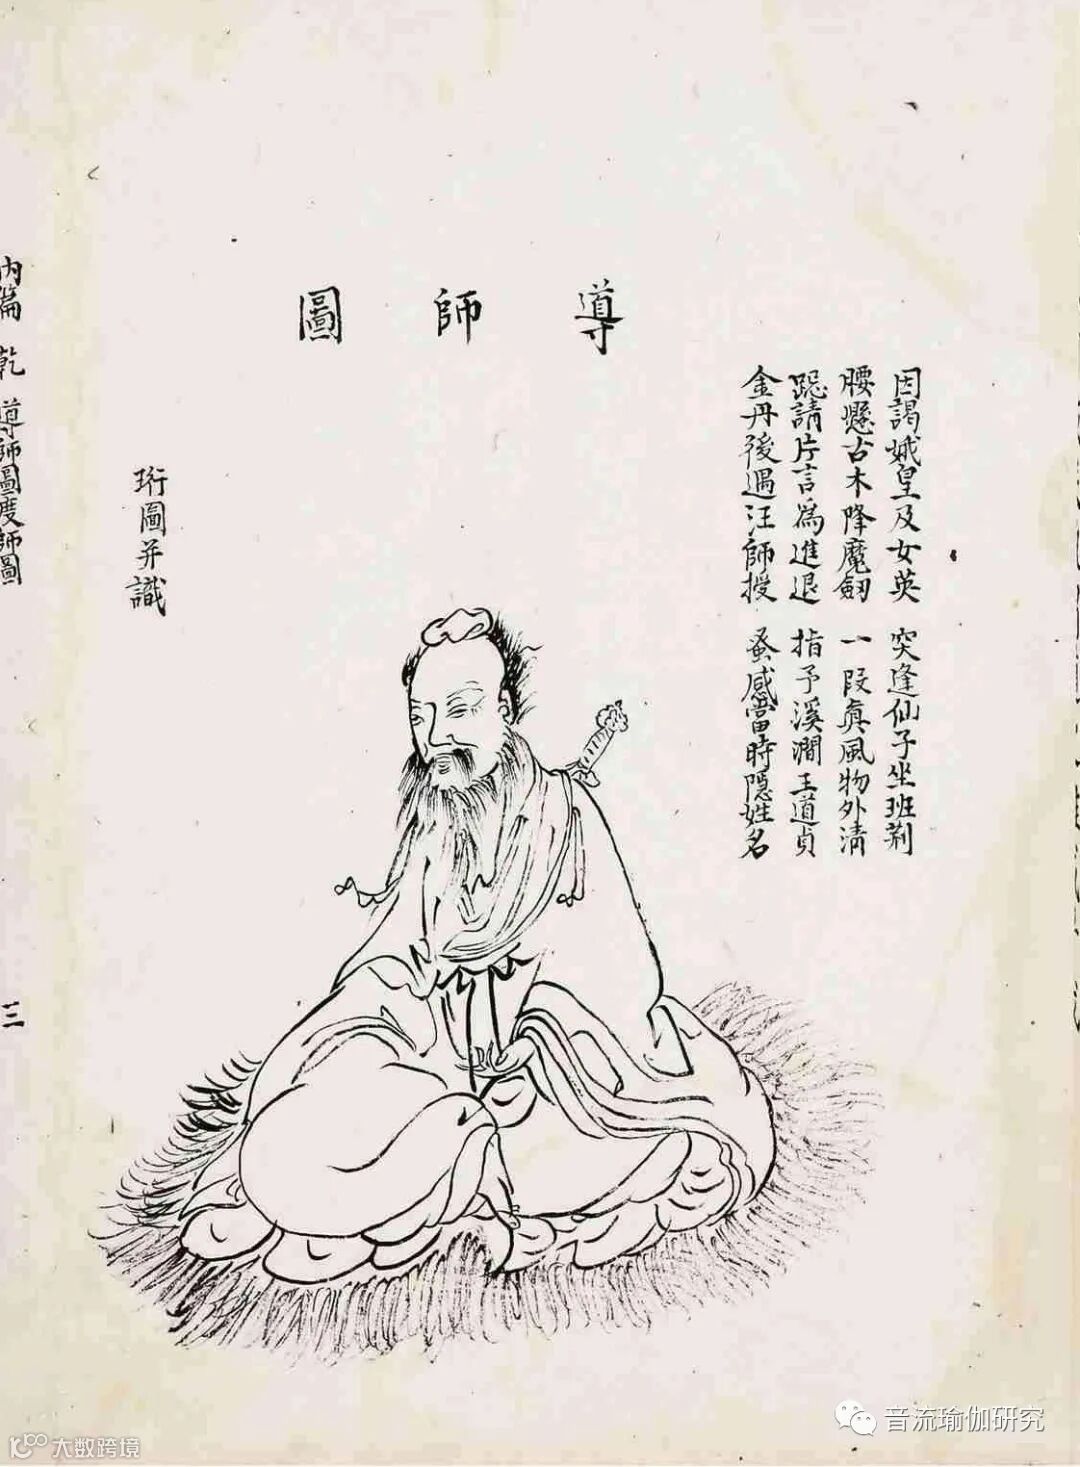 導師圖
因謁娥皇及女英　突逢仙子坐班荊
腰懸古木降魔劔　一段真風物外清
跽請片言為進退　指予溪澗王道貞
金丹後遇汪師授　蚤感當時隠姓名
珩圖并識
内篇　乾　導師圖度師圖
三
音流瑜伽研究
大数跨境